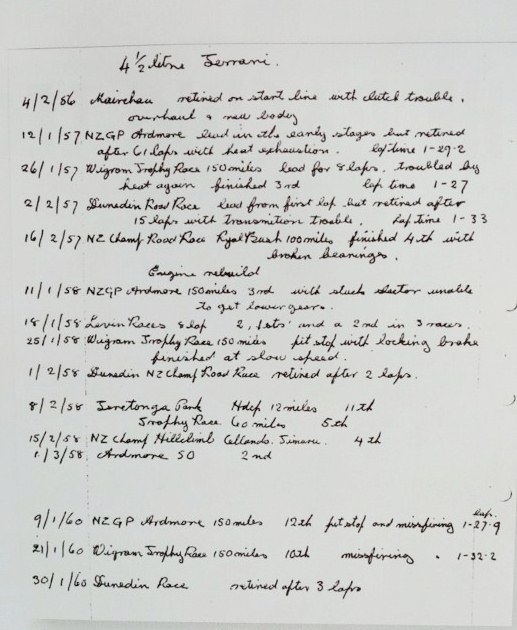 4 1/2 litre Ferrari.
4/2/56 Mairehau retired on start line with clutch trouble.
overhaul & new body
12/1/57 NZGP Ardmore lead in the early stages but retired
after 61 laps with heat exhaustion. lap time 1-29-2
26/1/57 Wigram Trophy Race 150 miles lead for 8 laps, troubled by
heat again finished 3rd lap time 1-27
2/2/57 Dunedin Road Race lead from first lap but retired after
15 laps with transmition trouble. Lap time 1-33
16/2/57 NZ Champ Road Race Ryal Bush 100 miles finished 4th with
broken bearings.
Engine rebuild
11/1/58 NZGP Ardmore 150 miles 3rd with stuck selector unable
to get lower gears.
18/1/58 Levin Races 8 lap 2, 1sts and a 2nd in 3 races.
25/1/58 Wigram Trophy Race 150 miles pit stop with locking brake
finished at slow speed.
1/2/58 Dunedin NZ Champ Road Race retired after 2 laps.
8/2/58 Teretonga Park Hdcp 12 miles 11th
Trophy Race 60 miles 5th
15/2/58 NZ Champ Hillclimb Timaru. 4th
1/3/58 Ardmore 50 2nd
9/1/60 NZGP Ardmore 150 miles 12th pit stop and missfiring 1-27.9
21/1/60 Wigram Trophy Race 150 miles 10th missfiring. 1-32-2
30/1/60 Dunedin Race retired after 3 laps